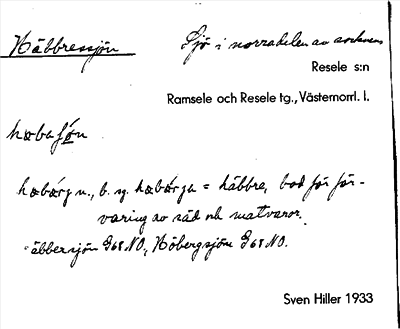 Häbbressjön Sjö i norradelen av socknen
Resele s:n
Ramsele och Resele tg., Västernorrl. l.
hæbaſǿn
hæbǽrg n., b. sg. hæbǽrga = häbbre, bod för för-
varing av säd och matvaror.
=äbbersjön G68NO., Höbergsjön G68NO.
Sven Hiller 1933